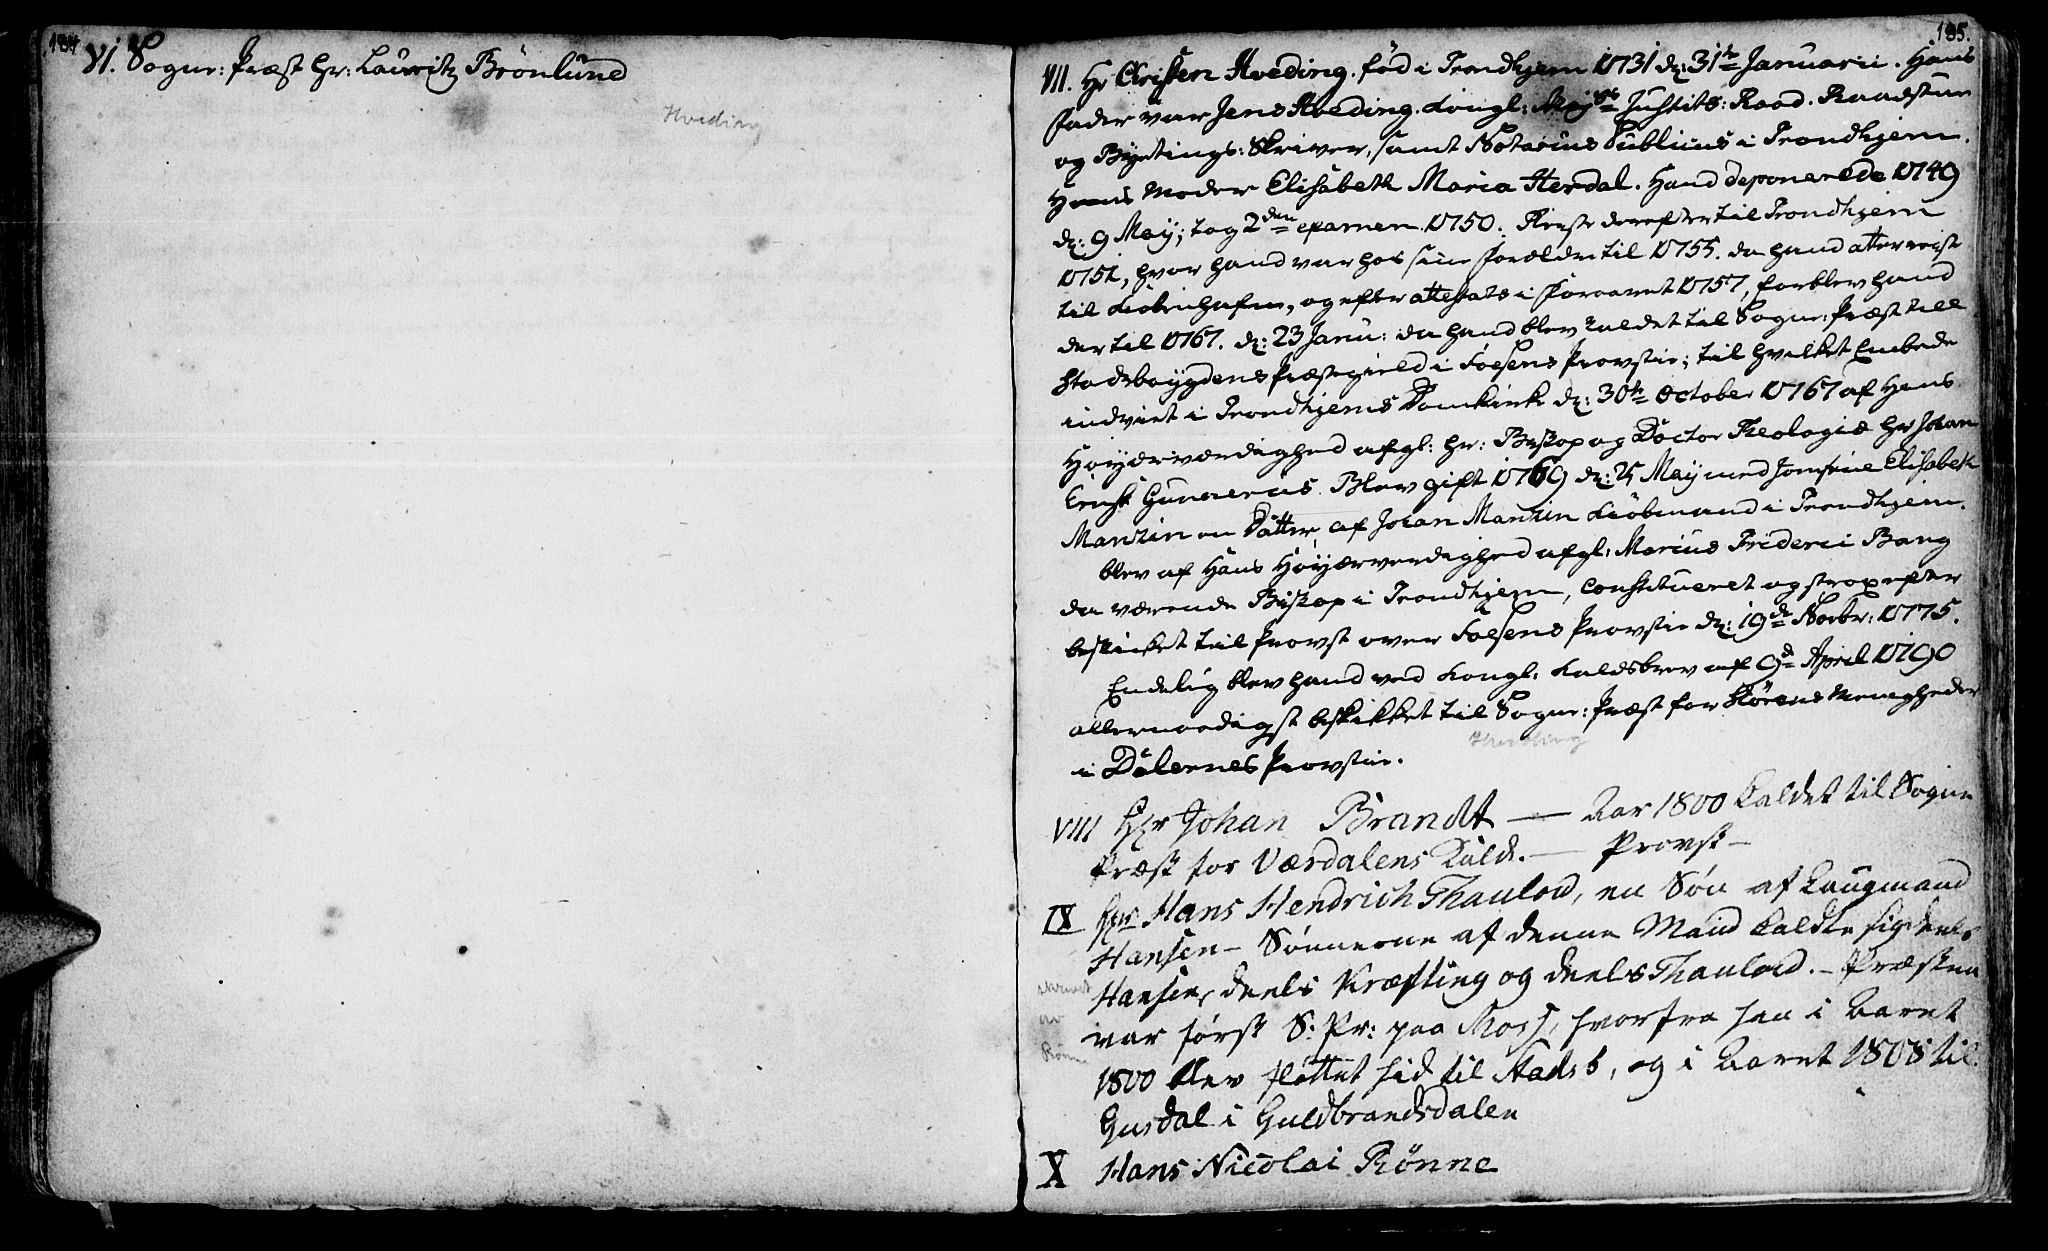 184
VI. Sogne: Præst Hr: Lauritz Brönlund
Hveding
185.
VII. Hr Christen Hveding. föd i Trondhjem 1731 dn: 31te Januarii. Hans
Fader var Jens Hveding. Kongl: Mayts Justits: Raad. Raadstue
og Byetings: Skriver, samt Notarius Publicus i Trondhjem.
Hans Moder Elisabeth Maria Herdal. Hand deponerede 1749
dn: 9 May; tog 2den examen 1750. Reiste derefter til Trondhjem
1751, hvor hand var hos sine Forældre til 1755. da hand atter reiste
til Kiöbenhafn, og efter attestats i Foraaret 1757, forblev hand
der til 1767. dn: 23 Janu: da hand blev kaldet til Sogne: Præst till
Stadsboygdens Præstegield i Fosens Provstie; til hvilket Embede
indviet i Trondhjems Domkirke dn: 30te October 1767 af Hans
Höyærværdighed afgl: Hr: Biskop og Doctor Theologiæ Hr Johan
Ernst Gunnerus. Blev gift 1769 dn: 25 May med Jomfrue Elisabeth
Manzin en Datter af Johan Manzin Kiöbmand i Trondhjem.
blev af Hans Höyærværdighed afgl: Marius Friderici Bang
da værende Biskop i Trondhjem, constitueret og strax efter
beskicket til Provst over Fosens Provstie dn: 19de Novbr: 1775.
Endelig blev hand ved Kongl: Kaldsbrev af 9de April 1790
allernaadigst beskikket til Sogne: Præst for Störens Menigheder
i Dalernes Provstie.
Hveding
VIII Hr Johan Brandt — Aar 1800 kaldet til Sogne
Præst for Værdalens Kald. — Provst —
IX Hr Hans Hendrich Thaulow, en Søn af Laugmand
Hansen – Sønnerne af denne Mand kaldte sig deels
Hansen, deels Kræfting og deels Thaulow. – Præsten
var først S: Pr: paa Moss, hvorfra han i Aaret
1800 blev fløttet hid til Stadsb, og i Aaret 1808 til
Gusdal i Guldbrandsdalen
skrevet
av
Rönne
X Hans Nicolai Rønne